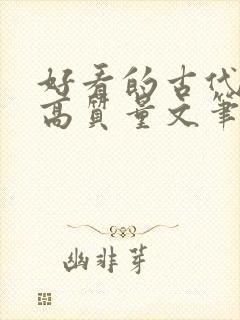 好看的古代
高质量文笔
幽非芽